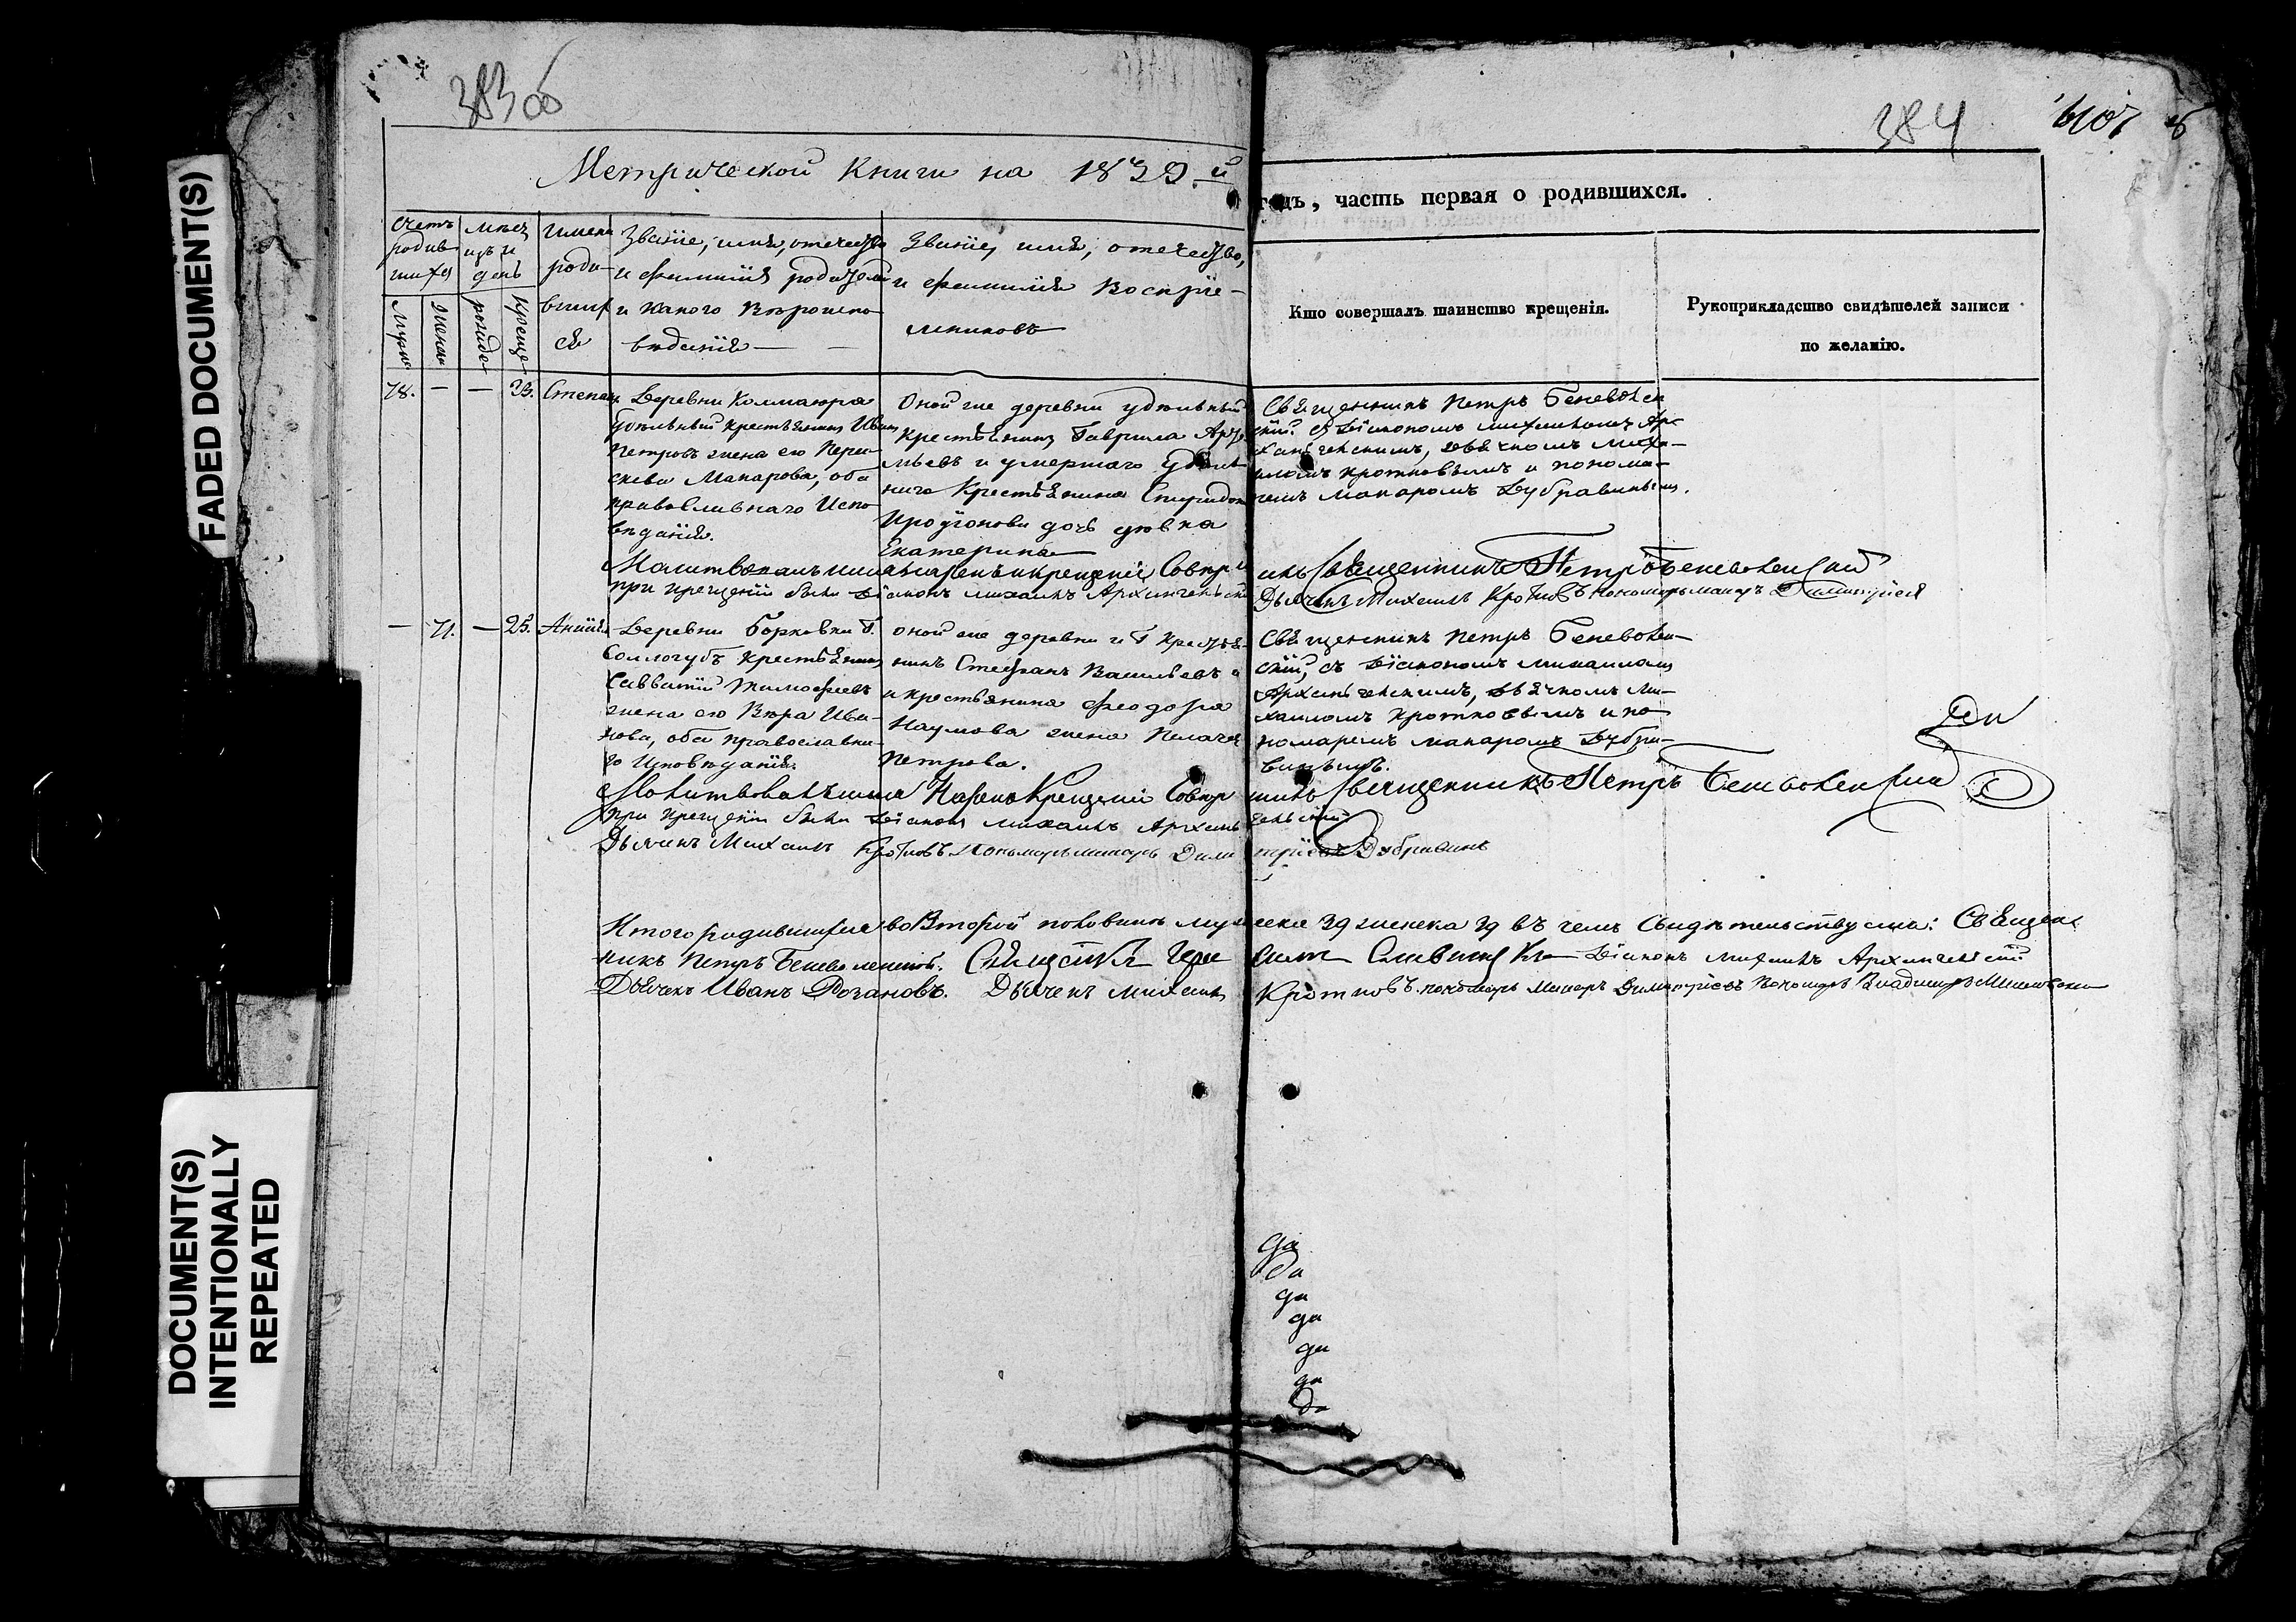 383об
384
Метрической книги на 1839.й
годъ, часть первая о родившихся.
счетъ родив шихся
мѣсяцъ и день
имена роди вшихся
Званіе, имя, отечество и фамилія родителей и какого вѣроисповѣданія
Званіе, имя, отечество, и фамилія воспріемниковъ
Кто совершалъ таинство крещенія.
Рукоприкладство свидѣтелей записи
по желанію.
мужск
женск
рожде
креще
78. — — 23. Степанъ
Деревни Коммаюра
удѣльный крестьянинъ Иванъ
Петровъ жена его Параскева Макарова, оба
православнаго испо
вѣданія.
Оной же деревни удѣльный
крестьянинъ Гаврила
и умершаго
крестьянина Спиридона
дочь дѣвка
Екатерина
Священникъ Петръ Беневолен
скій съ діакономъ михаиломъ Ар
хангельскимъ, дьячкомъ миха—
иломъ кротковымъ и понома—
ремъ макаромъ Дубравинымъ.
Молитвовалъ имя нарекъ и крещеніе совершилъ Священникъ Петръ Беневоленскій
при крещеніи были діаконъ михаилъ Архангельскій
Дьячекъ Михаилъ Кротковъ пономарь макаръ Димитріевъ
— 71. — 25. Анна
Деревни Борковки Г.
Соллогубъ крестьянинъ
Савватій Тимофеевъ
жена его Вѣра Ива—
нова, оба православна
го исповѣданія.
оной же деревни и Г крестья
нинъ Стефанъ Васильевъ и
крестьянина Феодора
Наумова жена Пелагея
Петрова.
Священникъ Петръ Беневолен—
скій, съ діакономъ михаиломъ
Архангельскимъ, дьячкомъ ми—
хаиломъ кротковымъ и по
номаремъ макаромъ Дубра—
винымъ.
Молитвовалъ имя нарекъ крещеніе совершилъ Священникъ Петръ Беневоленскій
при крещеніи были діаконъ михаилъ Архангельскій
Дьячекъ Михаилъ Кротковъ Пономарь макаръ Димитріевъ Дубравинъ
Итого родившихся во второй половинѣ мужеска 39 женска 39 въ чемъ свидѣтельствуемъ: Священ
никъ Петръ Беневоленской. Діаконъ михаилъ Архангельскій
Дьячекъ Иванъ Розановъ. Дьячекъ михаилъ Кротковъ. пономарь Макаръ Димитріевъ пономарь Владимиръ
да
да
да
да
да
да
да
FADED DOCUMENT(S)
DOCUMENT(S)
INTENTIONALLY
REPEATED